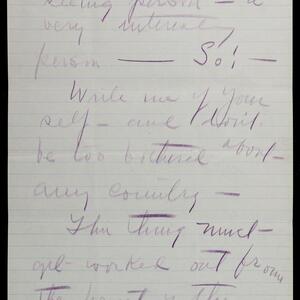 seeing person — a
very interesting
person —— So! —
Write me of your
self — and don't
be too bothered about —
any country —
This thing must —
get worked out from
the